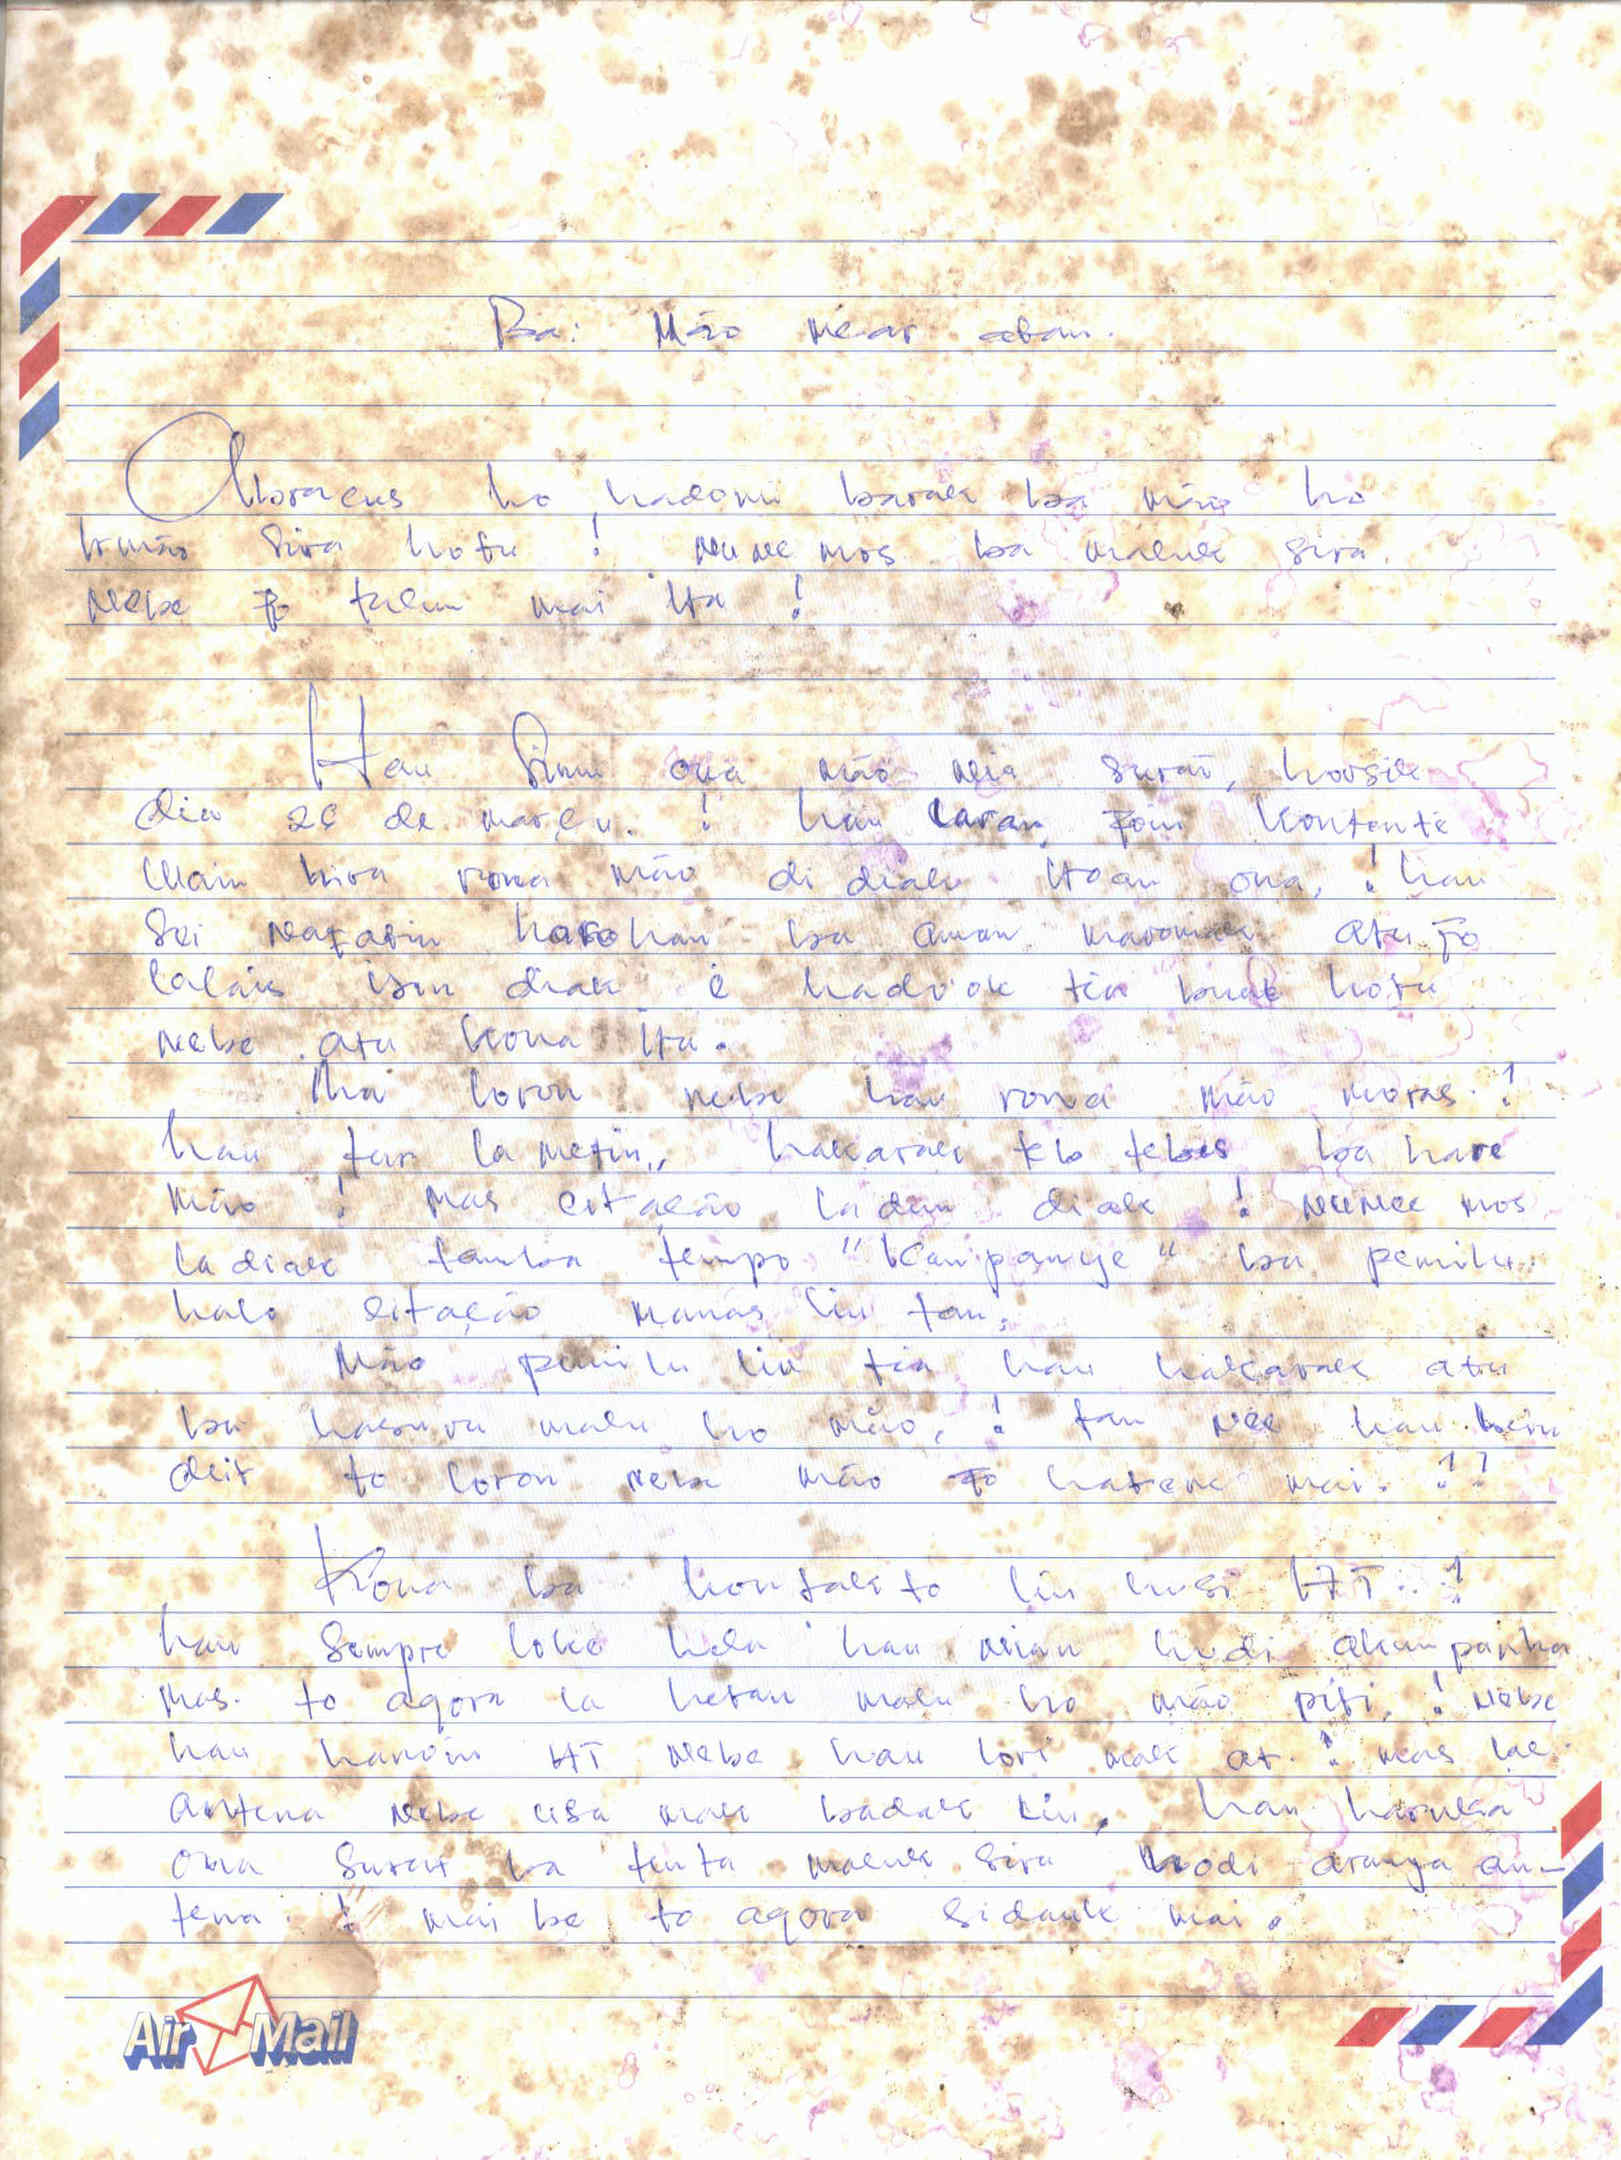 Ba: Mão near aban.
Abracus ho hadomi barak ba mão ho
Irmão sira hotu ! Nune mos ba maluk sira.
Nebe fo tulun mai Ita !
Hau Simu ona mão nia surat, horsik
dia 26 de marçu. ! hau laran foin kontente
Uain hira rona mão di diak Itoan ona, ! hau
Sei nafatin harohan ba aman maromak atu fo
lalais isin diak i hadook tia buat hotu
nebe atu kona Ita.
Iha loron nebe hau rona mão moras. !
hau tur la metin,, hakarak tebtebes ba hare
mão ! Mas citação ladun diak ! nunee mos
ladiak tamba tempo "Kampanye" ba pemilu.
halo citação manas liu tan.
Mão pemilu liu tia hau hakarak atu
ba hasuru malu ho mão, ! tan nee hau hein
deit to loron nebe mão fo hatene mai. !!
Kona ba kontakto liu husi HT.. !
hau Sempre loke hela hau nian hudi akumpanha
mas. to agora la hetan malu ho mão piti. ! nebe
hau hanoin HT nebe hau lori mak at. ! mas lae.
antena nebe uSa mak badak liu, hau haruka
ona surat ba tenta maluk sira hodi aranya an-
tena. ! mai be to agora sidauk mai.
Air Mail